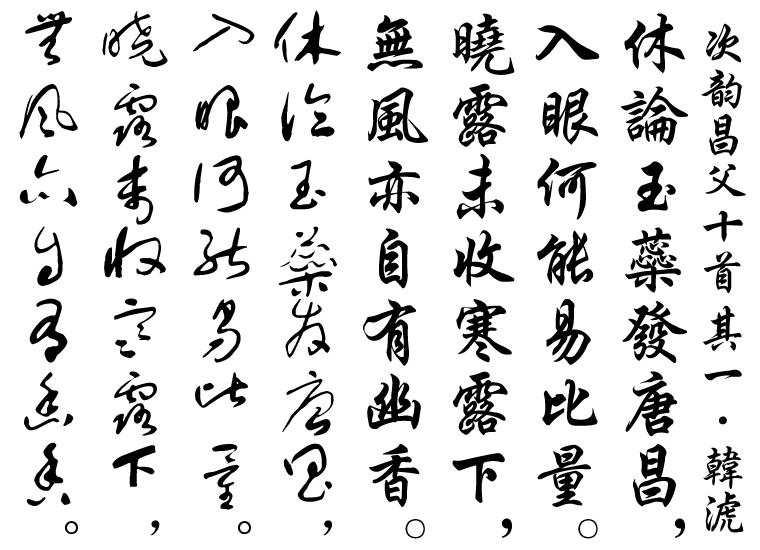 次韵昌父十首其一·韓淲
休論玉蘂發唐昌，
入眼何能易比量。
曉露未收寒露下，
無風亦自有幽香。
休论玉蘂发唐昌，
入眼何能易比量。
晓露未收寒露下，
无风亦自有幽香。